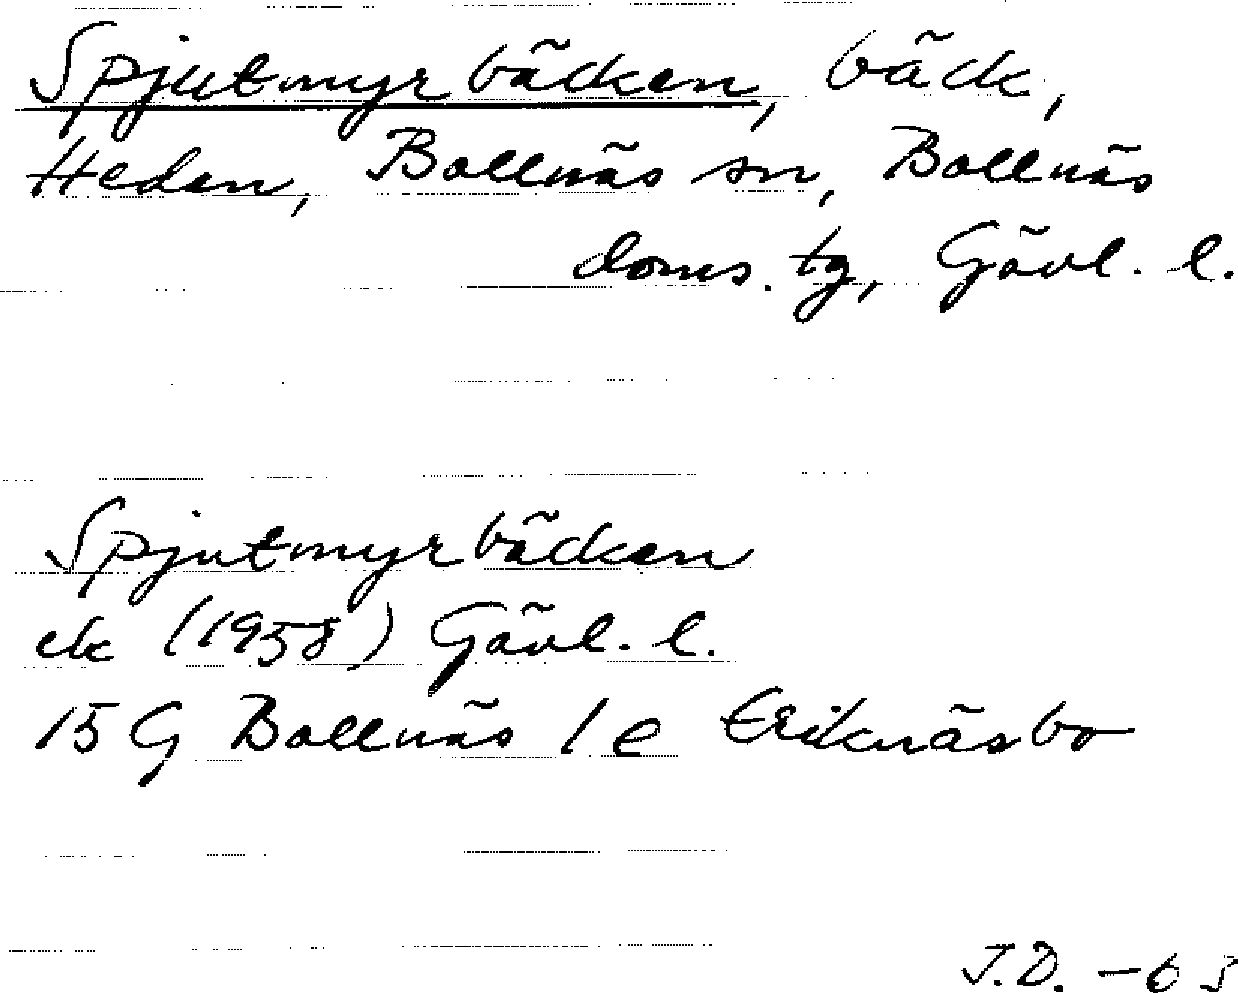 Spjutmyrbäcken, bäck,
Heden, Bollnäs sn, Bollnäs
doms. tg, Gävl. l.
Spjutmyrbäcken
ek (1958) Gävl. l.
15 G Bollnäs 1 e Eriknäsbo
J.D. -63